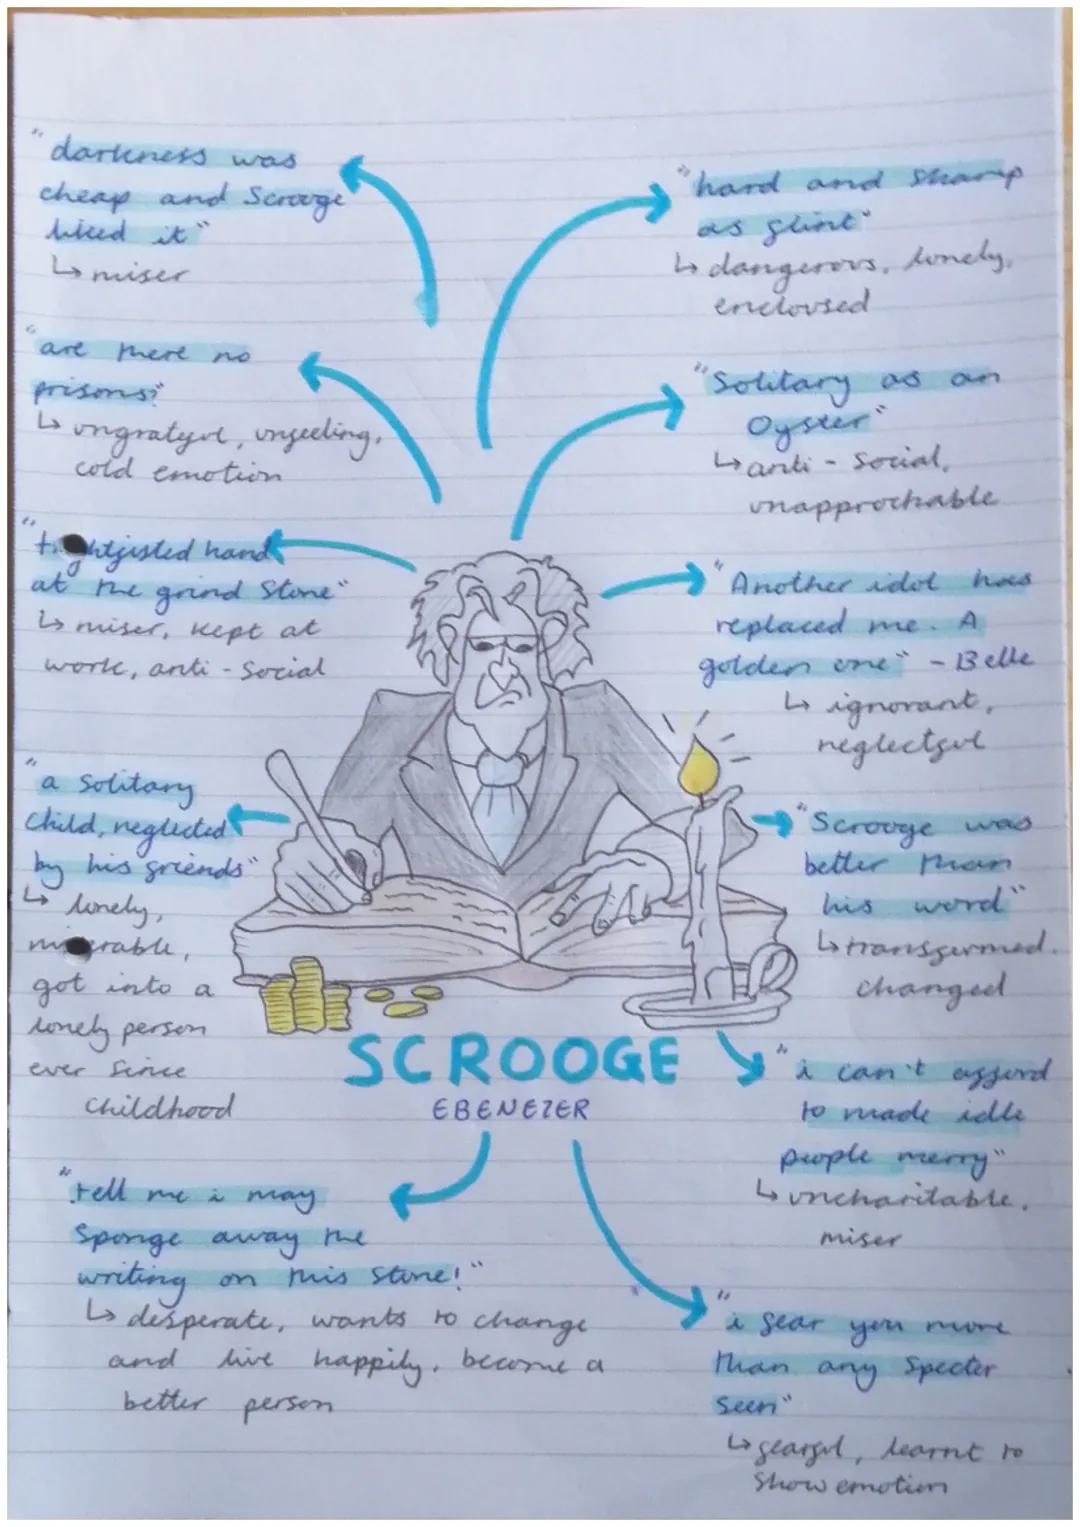 "darkness was
cheap and Scrooge
liked it"
↳ miser
"are there no
prisons?"
↳ ungrateful, unfeeling,
cold emotion
"t ghtfisted hand
at the grind Stone"
↳ miser, kept at
work, anti - Social
"a Solitary
Child, neglected
by his friends"
↳ lonely,
m erable,
got into a
lonely person
ever since
Childhood
"tell me i may
Sponge away the
writing on this Stone!"
↳ desperate, wants to change
and live happily. become a
better person
"hard and Sharp
as flint"
↳ dangerous, lonely,
encloused
"Solitary as an
Oyster"
↳ anti - Social,
unapprochable
"Another idol has
replaced me. A
golden one" - Belle
↳ ignorant,
neglectful
"Scrooge was
better than
his word"
↳ transformed.
changed
"i can't afford
to made idle
people merry"
↳ uncharitable,
miser
"i fear you more
than any Specter
Seen"
↳ fearful, learnt to
Show emotion
SCROOGE
EBENEZER